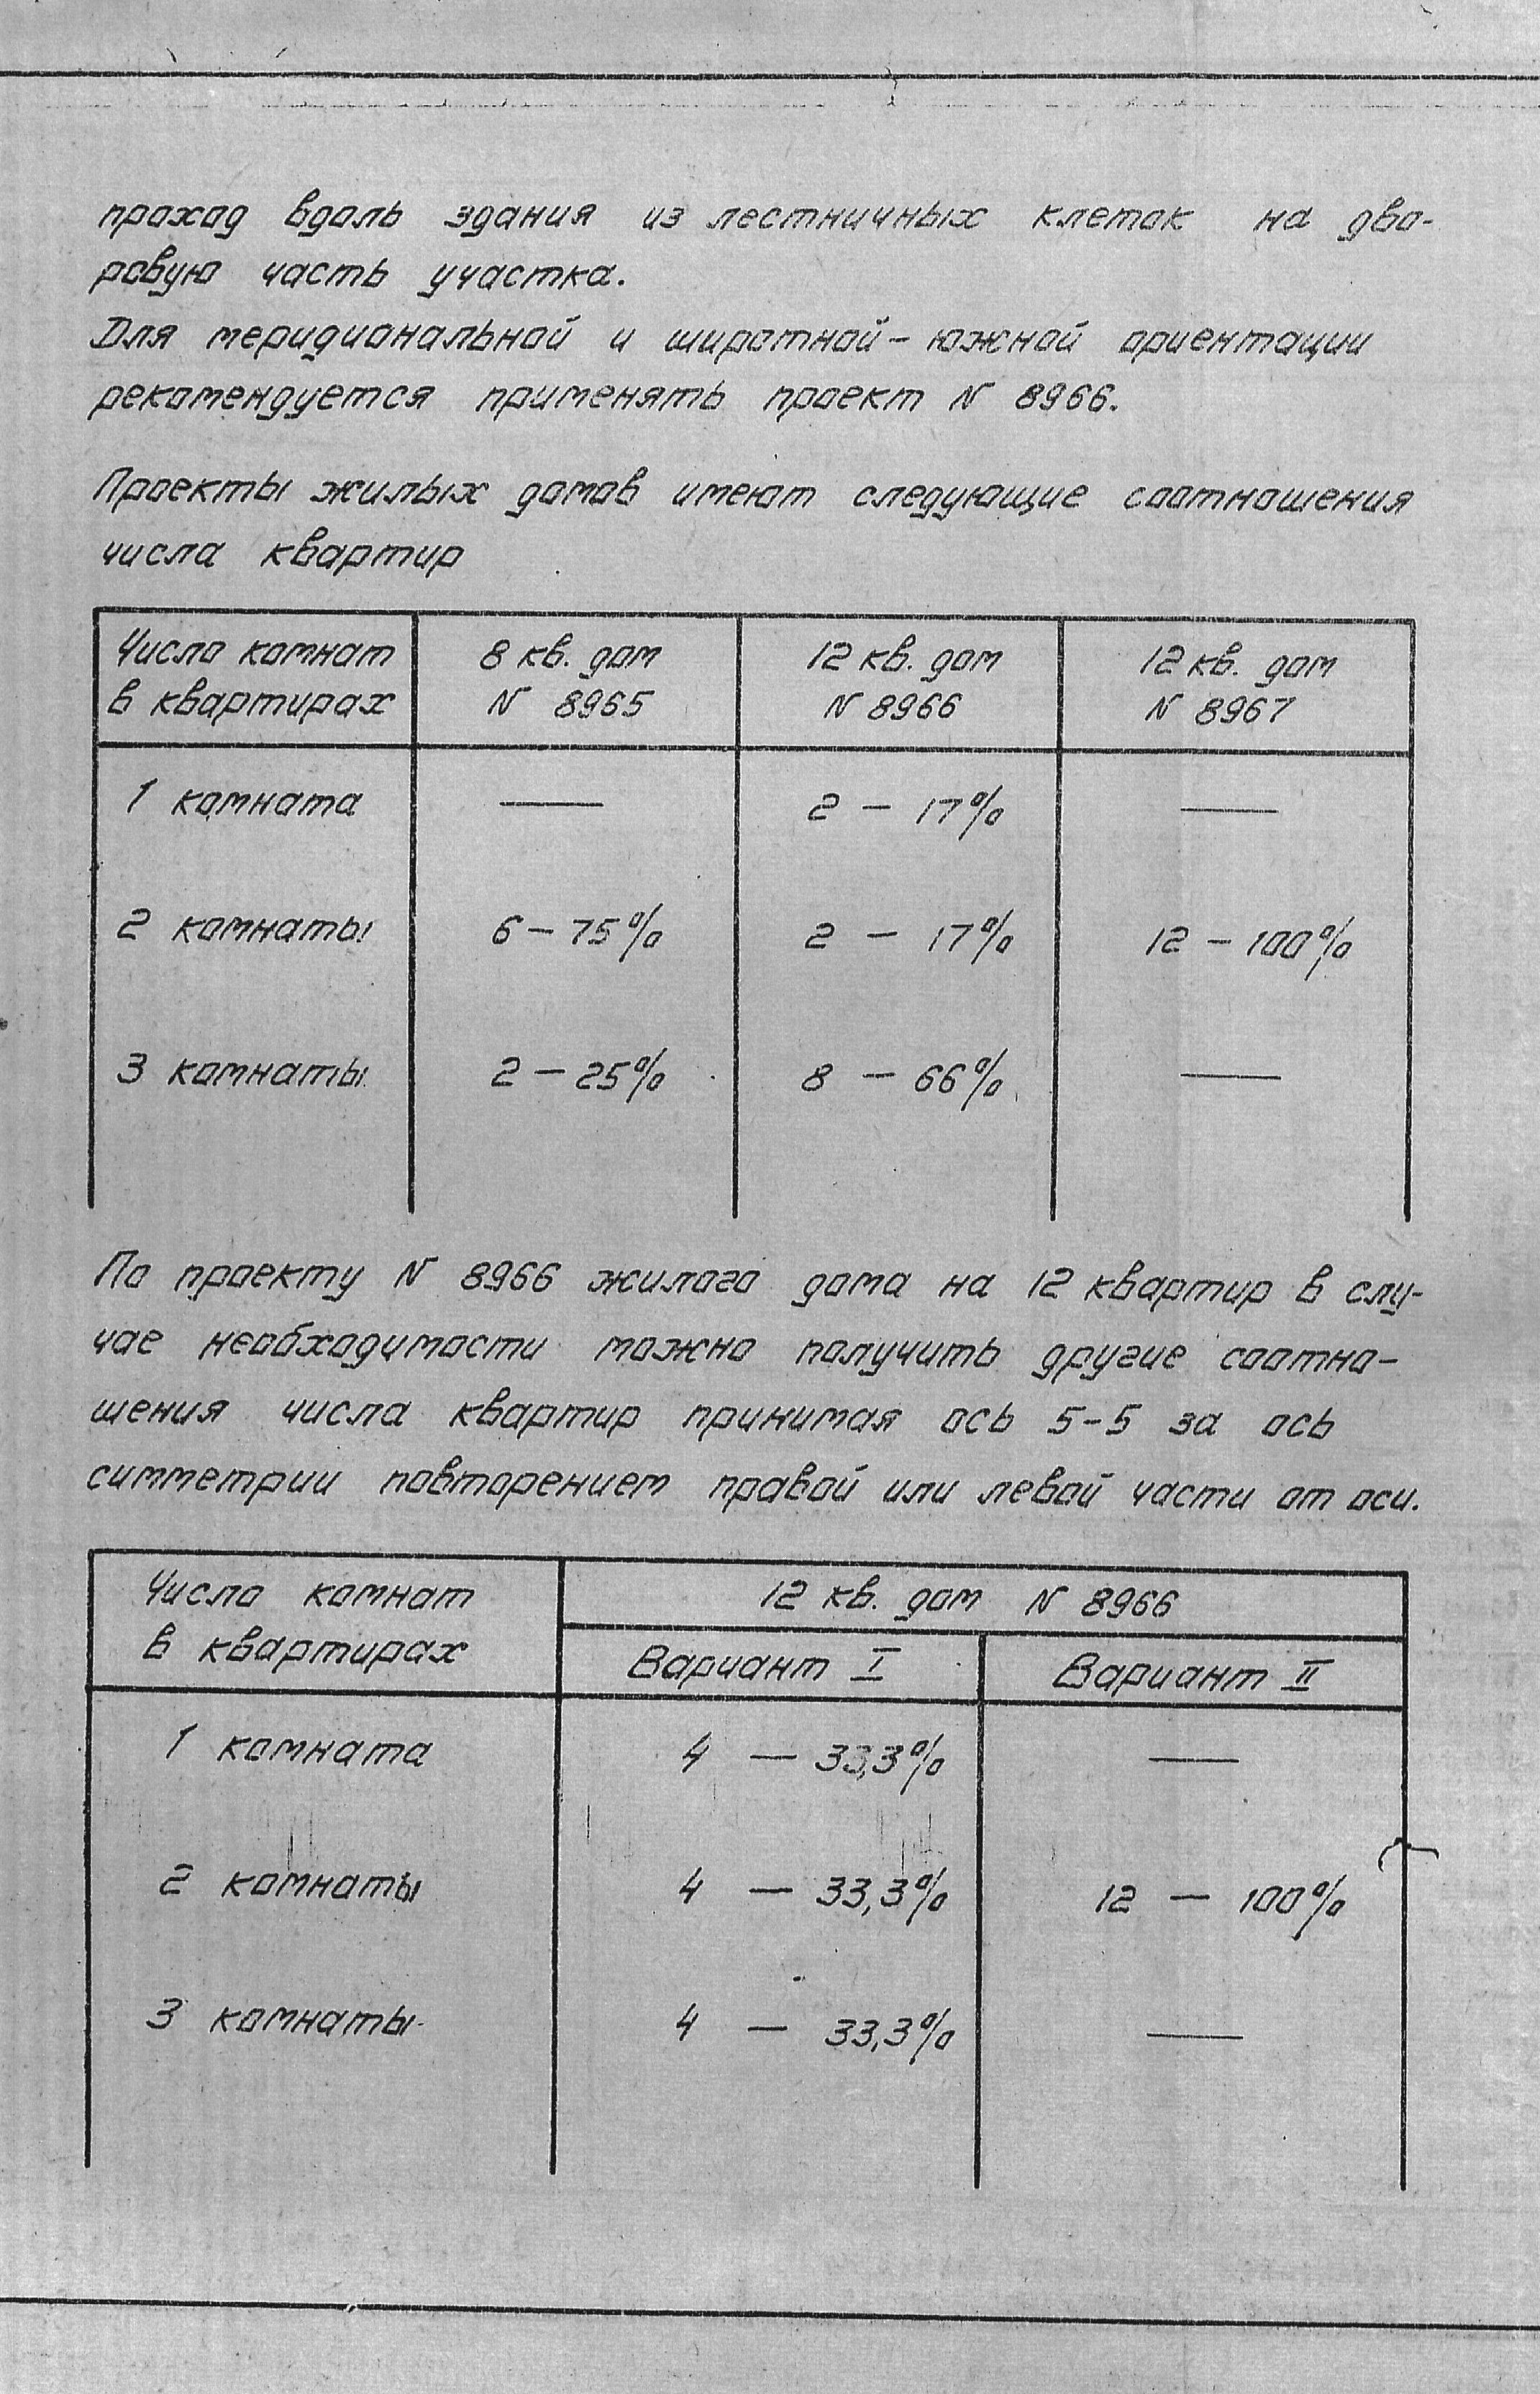 проход вдоль здания из лестничных клеток на дво-
ровую часть участка.
Для меридиональной и широтной - южной ориентации
рекомендуется применять проект N 8966.
Проекты жилых домов имеют следующие соотношения
числа квартир
Число комнат в квартирах | 8 кв. дом N 8965 | 12 кв. дом N 8966 | 12 кв. дом N 8967
1 комната | — | 2 — 17% | —
2 комнаты | 6 — 75% | 2 — 17% | 12 — 100%
3 комнаты | 2 — 25% | 8 — 66% | —
По проекту N 8966 жилого дома на 12 квартир в слу-
чае необходимости можно получить другие соотно-
шения числа квартир принимая ось 5-5 за ось
симметрии повторением правой или левой части от оси.
Число комнат в квартирах | 12 кв. дом N 8966
Вариант I | Вариант II
1 комната | 4 — 33,3% | —
2 комнаты | 4 — 33,3% | 12 — 100%
3 комнаты | 4 — 33,3% | —